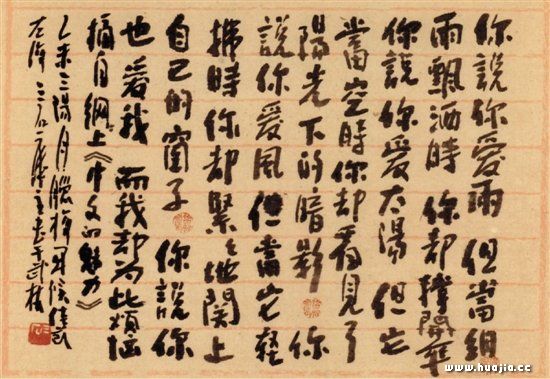 你說你愛雨 但當細
雨飄洒時 你却撐開傘
你說你愛太陽 但它
當空時你却看見了
陽光下的暗影 你
說你愛風 但當它輕
拂時 你却緊緊地関上
自己的窗子 你說你
也愛我 而我却為此煩惱
摘自網上《中文的魅力》
乙未三陽月臘梅
左海三石
www.huajia.cc